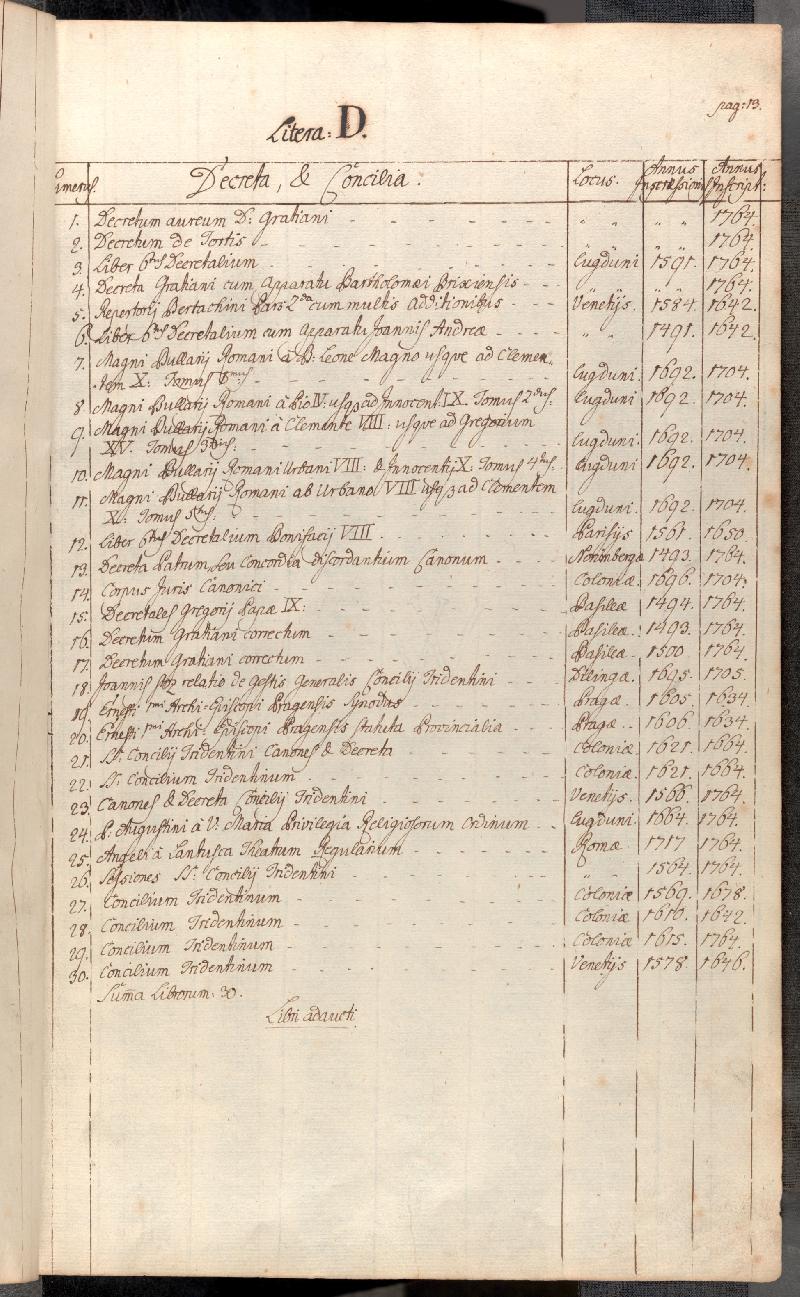 pag: 13.
Litera: D.
Numerus. Decreta, & Concilia. Locus. Annus Impressionis Annus Inscript:
1. Decretum aureum D: Gratiani - - - - - - - - " " " " 1764.
2. Decretum de Tortis - - - - - - - - - - 1764.
3. Liber 6tus Decretalium - - - - - - - - - Lugduni 1591. 1764.
4. Decreta Gratiani cum Apparatu Bartholomæi Brixiensis - - - " " " " 1764.
5. Repertorij Bertachini Pars 2da cum multis additionibus - - - Venetijs. 1584. 1642.
6. Liber 6tus Decretalium cum Apparatu Joannis Andreæ - - - " " 1491. 1642.
7. Magni Bullarij Romani à B: Leone Magno usque ad Clemen-
tem X: Tomus 1mus - - - - - - - - Lugduni. 1692. 1704.
8 Magni Bullarij Romani à Pio IV: usq ad Innocent: IX. Tomus 2dus: Lugduni 1692. 1704.
9. Magni Bullarij Romani à Clemente VIII: usque ad Gregorium
XV. Tomus 3tius: - - - - - - - - Lugduni. 1692. 1704.
10. Magni Bullarij Romani Urbani VIII: & Innocentij X: Tomus 4tus. Lugduni 1692. 1704.
11. Magni Bullarij Romani ab Urbano VIII usq ad Clementem
X: Tomus 5tus: - - - - - - - - Lugduni. 1692. 1704.
12. Liber 6tus Decretalium Bonifacij VIII. - - - - - - Parisijs 1561. 1650.
13. Decreta Patrum, seu Concordia discordantium Canonum - - - Norimbergæ 1493. 1764.
14. Corpus Juris Canonici - - - - - - - - Coloniæ. 1696. 1704.
15. Decretales Gregorij Papæ IX: - - - - - - - - Basileæ 1494. 1764.
16. Decretum Gratiani correctum - - - - - - - Basileæ. 1493. 1764.
17. Decretum Gratiani correctum - - - - - - - Basileæ. 1500 1764.
18. Joannis relatio de gestis Generalis Concilij Tridentini - - - Dilingæ. 1695. 1705.
19. Ernesti 1mi Archi-Episcopi Pragensis Synodus - - - - - Pragæ. 1605. 1634
20. Ernesti 1mi Archi-Episcopi Pragensis statuta Provincialia - - Pragæ. 1606. 1634.
21. SS: Concilij Tridentini Canones & Decreta - - - - - Coloniæ 1621. 1664.
22. SS. Concilium Tridentinum - - - - - - - - Coloniæ. 1621. 1664.
23. Canones & Decreta Concilij Tridentini - - - - - - Venetijs. 1566. 1764.
24. P. Augustini à V: Maria Privilegia Religiosorum Ordinum - - Lugduni. 1664. 1764.
25. Angeli à Lantusca Theatrum Regularium - - - - - Romæ 1717 1764.
26. Sessiones SS: Concilij Tridentini - - - - - - " " 1564. 1764.
27. Concilium Tridentinum - - - - - - - - Coloniæ 1569. 1678.
28. Concilium Tridentinum - - - - - - - - Coloniæ 1610. 1642.
29. Concilium Tridentinum - - - - - - - - Coloniæ 1615. 1764.
30. Concilium Tridentinum - - - - - - - - Venetijs 1578. 1646.
Sum̄a Librorum: 30.
Libri adaucti